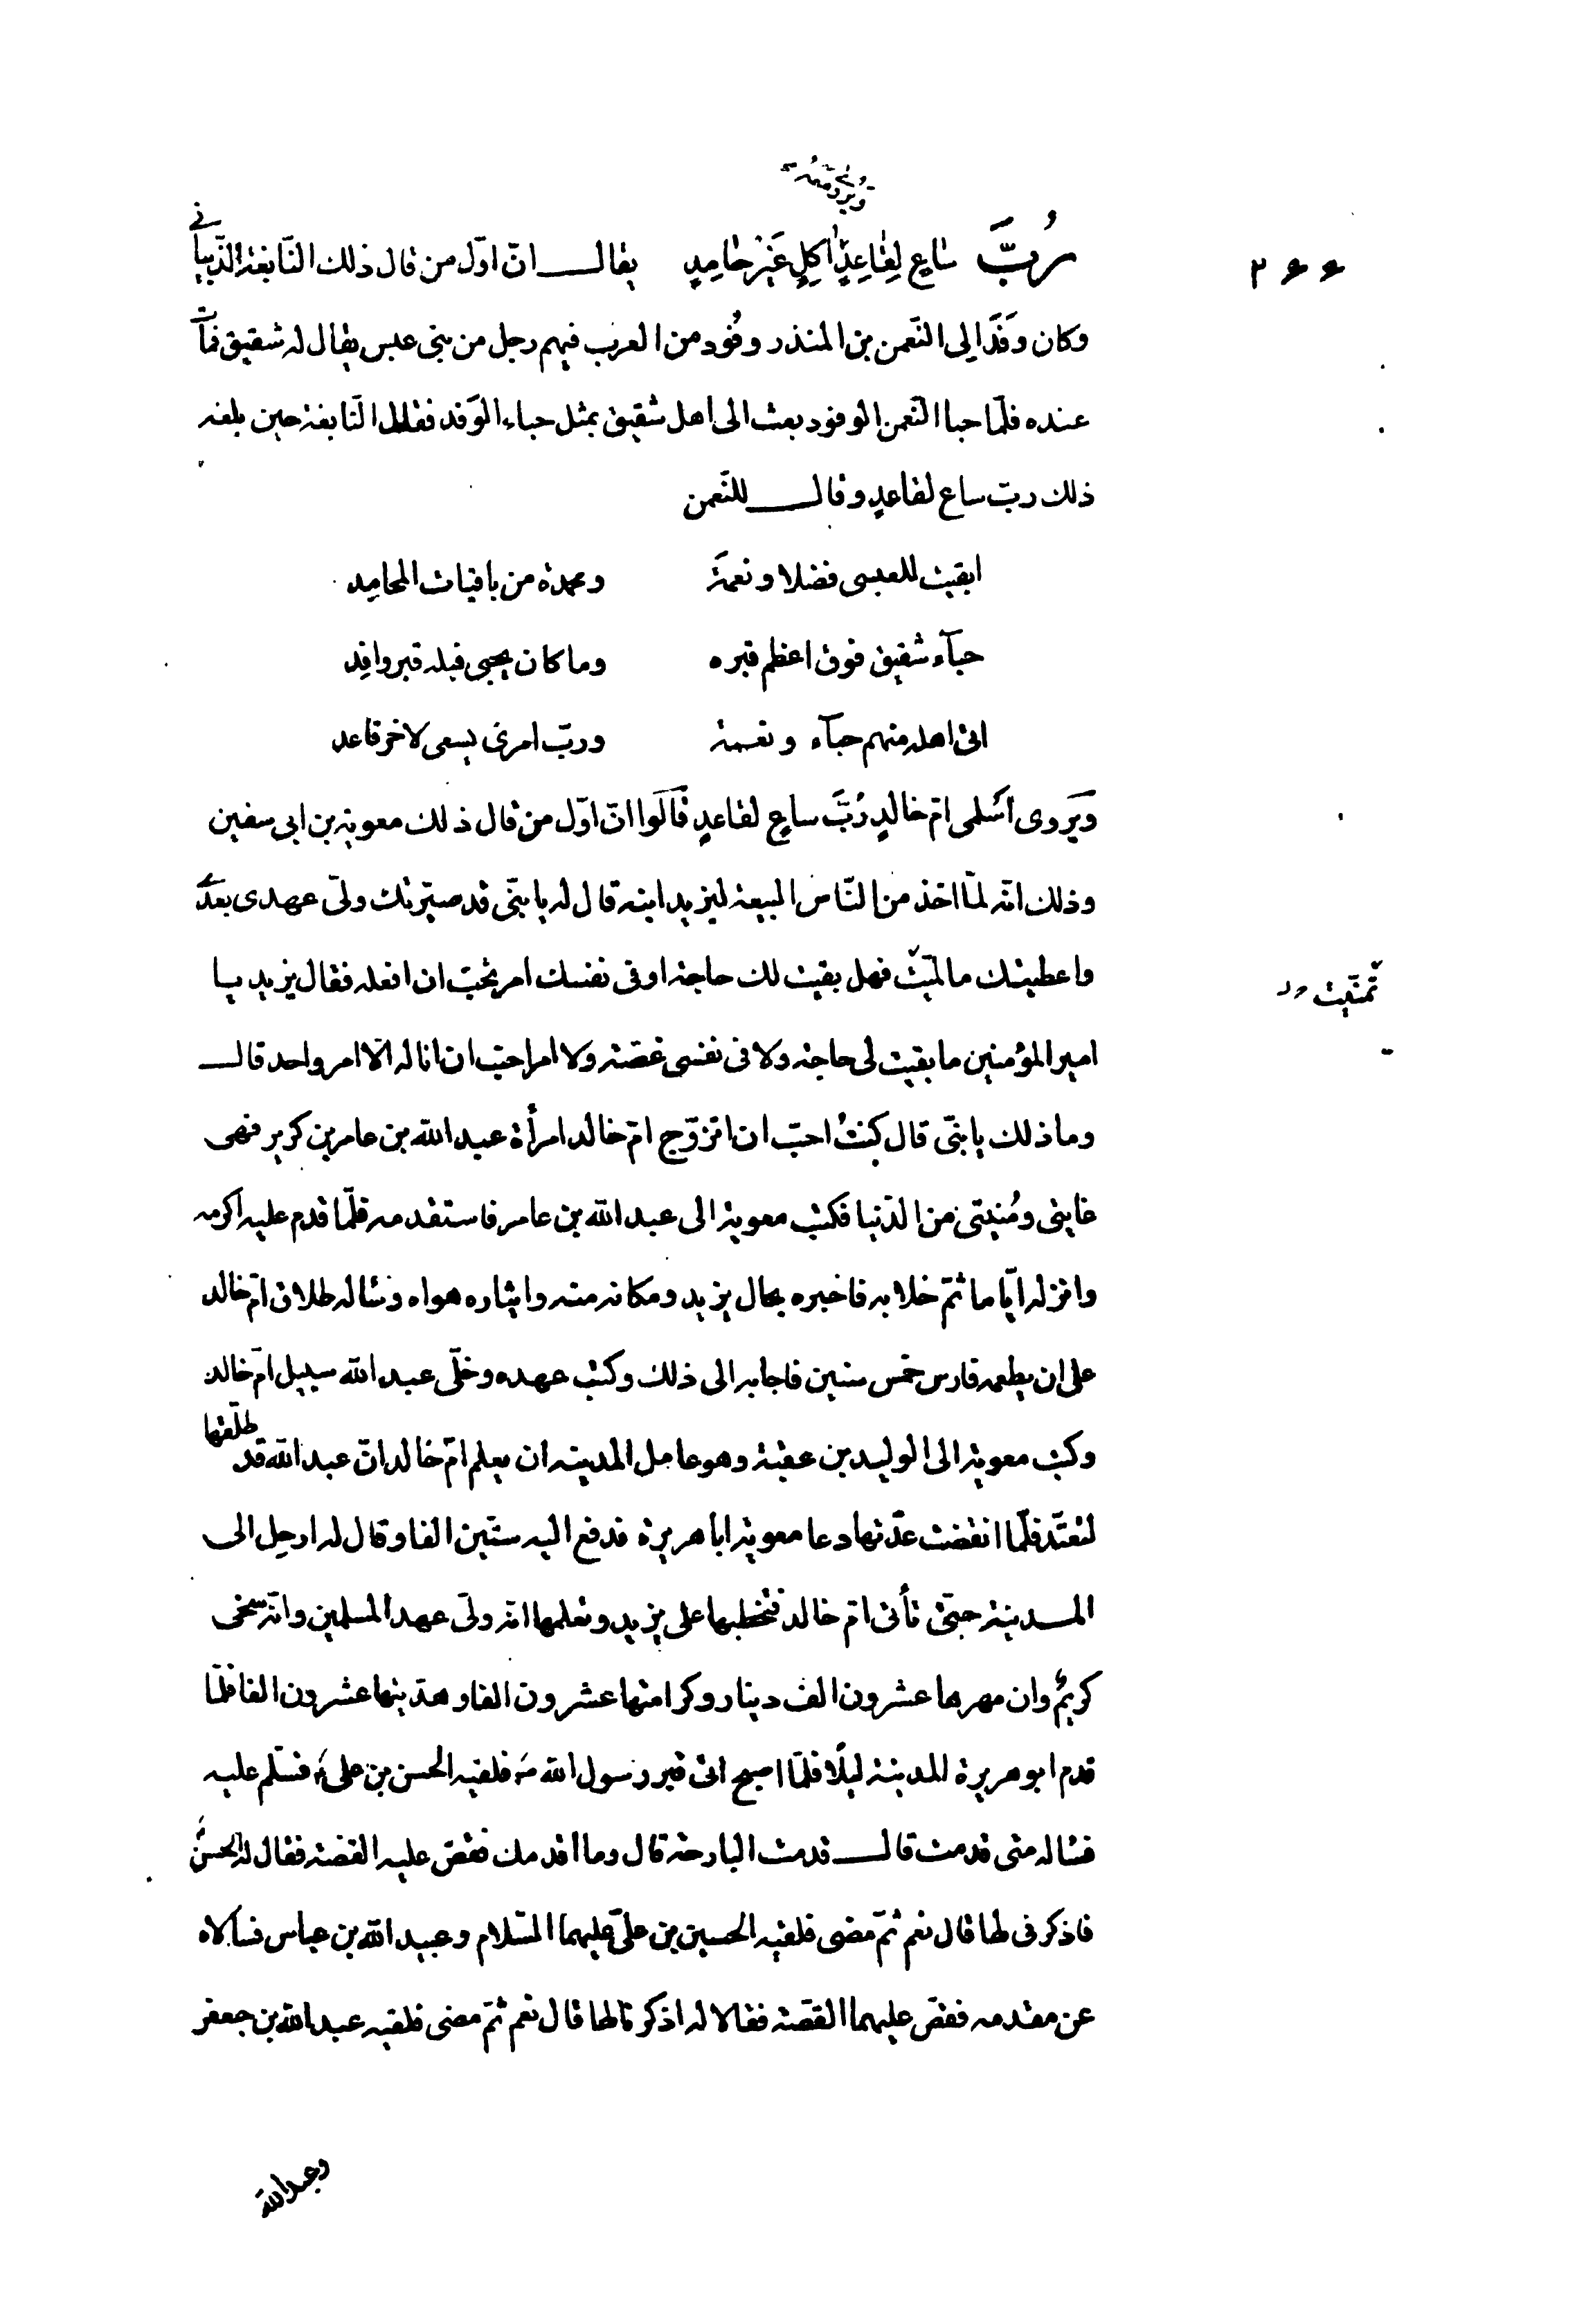 رُبَّ سَاعٍ لِقَاعِدٍ اٰكِلٍ غَيْرِ حَامِدٍ يقالــ انّ اوّل من قال ذلك النّابغة الذّبيانى
٢٤٤
وكان وَفَدَ الِى النّعمن بن المنذر وفُود من العرب فيهم رجل من بنى عبس يقال له شقيق فمات
عنده فلمّا حبا النّعمن الوفود بعث الى اهل شقيق بمثل حباء الوَفد فقال النّابغة حين بلغه
ذلك ربّ ساع لقاعدٍ وقالــ للنّعمن
ابقيت للعبسى فضلا ونعمَة ومحمدة من باقيات المحامِد
حبآء شقيق فوق اعظم قبره وما كان يحبى قبله قبر وافِد
اتى اهله منهم حبآء ونعمة وربّ امرئ يسعى لاخر قاعد
وَيروى اسلمى امّ خالدٍ رُبَّ ساعٍ لقاعدٍ قَالَوا انّ اوّل من قال ذلك معوية بن ابى سفين
وذلك انّه لمّا اخذ من النّاس البيعة ليزيد ابنه قال له يا بنّى قد صيّرتك ولىّ عهدى بعدى
واعطيتك ما تمنّيت فهل بقيت لك حاجة او فى نفسك امر تحبّ ان افعله فقال يزيد يا
تمنّيت
امير المؤمنين ما بقيت لى حاجة ولا فى نفسى غصّة ولا امر احبّ ان اناله الّا امر واحد قالــ
وما ذلك يا بنّى قال كنتُ احبّ ان اتزوّج امّ خالد امرأة عبد الله بن عامر بن كريز فهى
غايتى ومُنيتى من الدّنيا فكتب معوية الى عبد الله بن عامر فاستقدمه فلمّا قدم عليه اكرمه
وانزله ايّاما ثمّ خلا به فاخبره بحال يزيد ومكانه منه وايثاره هواه وسَاله طلاق امّ خالد
على ان يطعمه فارس خمس سنين فاجابه الى ذلك وكتب عهده وخلّى عبد الله سبيل امّ خالد
وكتب معوية الى الوليد بن عقبة وهو عامل المدينه ان يعلم امّ خالد انّ عبد الله قد طلّقها
لتعتدّ فلمّا انقضت عدّتها دعا معوية ابا هريرة فدفع اليه ستّين الفا وقال له ارحل الى
المدينة حتّى تأتى امّ خالد فتخطبها على يزيد وتعلمها انّه ولىّ عهد المسلمين وانّه سخى
كريمٌ وان مهرها عشرون الف دينار وكرامتها عشرون الفا وهدّيتها عشرون الفا فلمّا
قدم ابو هريرة المدينة ليلًا فلمّا اصبح اتى قبر رسول الله ص فلقيه الحسن بن على ع فسلّم عليه
فساله متى قدمت قالــ قدمت البارحة قال وما اقدمك فقصّ عليه القصّة فقال له الحسن
فاذكرنى لها قال نعم ثمّ مضى فلقيه الحسين بن علىّ عليهما السّلام وعبيد الله بن عباس فسالاه
عن مقدمه فقصّ عليهما القصّة فقالا له اذكرنا لها قال نعم ثمّ مضى فلقيه عبد الله بن جعفر
وعبد الله